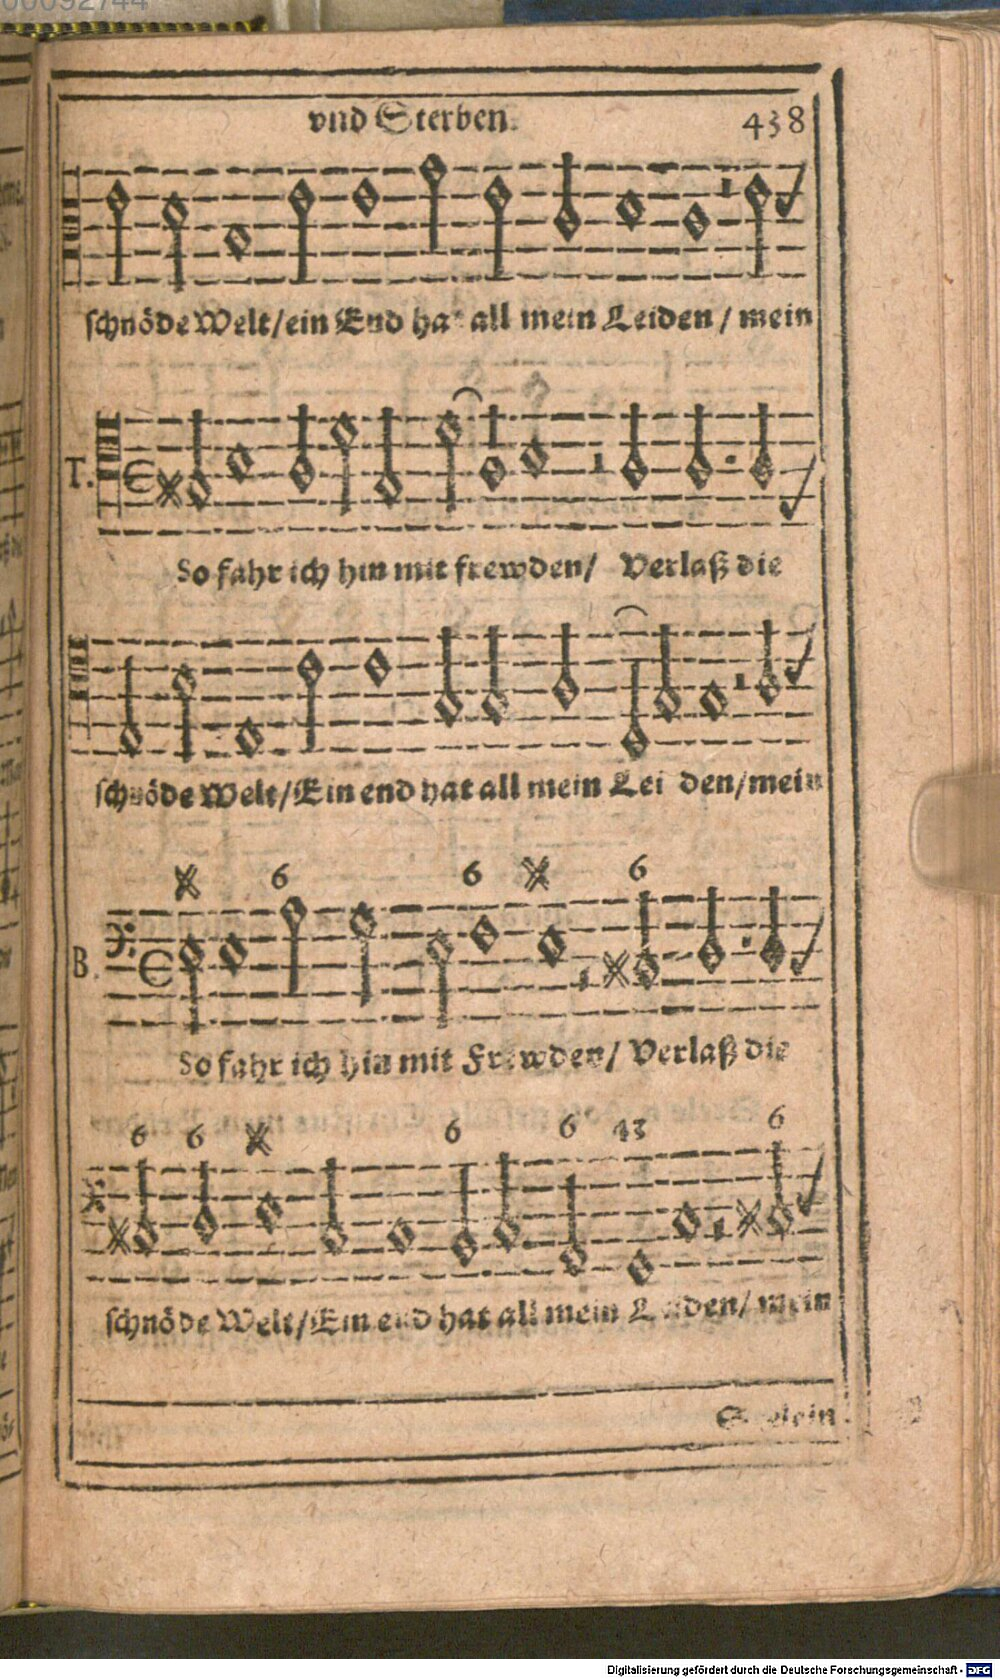 00092744
vnd Sterben. 438
schnöde Welt/ein End hat all mein Leiden / mein
T.
So fahr ich hin mit frewden/ Verlaß die
schnöde Welt/Ein end hat all mein Lei den/mein
6 6 6
B.
So fahr ich hin mit Frewden/ Verlaß die
6 6 6 6 43 6
schnöde Welt/Ein end hat all mein Leiden/ mein
Digitalisierung gefördert durch die Deutsche Forschungsgemeinschaft - DFG